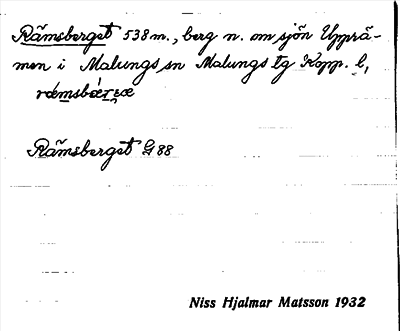 Rämsberget 538 m., berg n. om sjön Upprä-
men i Malungs sn Malungs tg Kopp. l,
ræmsbærʒæ
Rämsberget G 88
Niss Hjalmar Matsson 1932